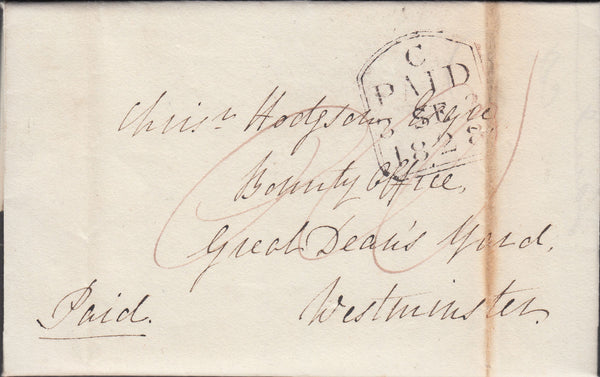 C
PAID
SE
1828
Chrisr. Hodgson Esqre
Bounty Office,
Great Dean's Yard,
Westminster.
Paid.